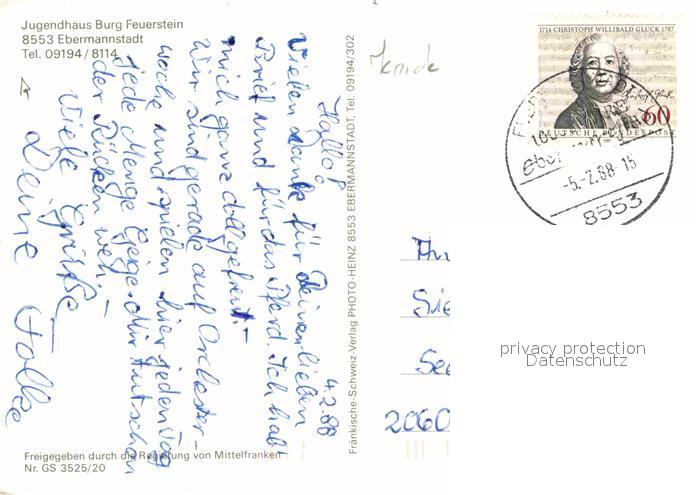 Jugendhaus Burg Feuerstein
8553 Ebermannstadt
Tel. 09194/8114
4.2.88
Hallo!
Vielen Dank für Deinen lieben
Brief und für das Pferd. Ich hab'
mich ganz doll gefreut.-
Wir sind gerade auf Orchester-
woche und spielen hier jeden Tag
jede Menge Geige. Mir tut schon
der Rücken weh.-
Viele Grüße
Deine
Fränkische-Schweiz-Verlag PHOTO-HEINZ 8553 EBERMANNSTADT, Tel. 09194/302
Freigegeben durch die Regierung von Mittelfranken
Nr. GS 3525/20
1714 CHRISTOPH WILLIBALD GLUCK 1787
60
DEUTSCHE BUNDESPOST
-5.-2.88-15
8553
An
Sie
See
2060
privacy protection
Datenschutz